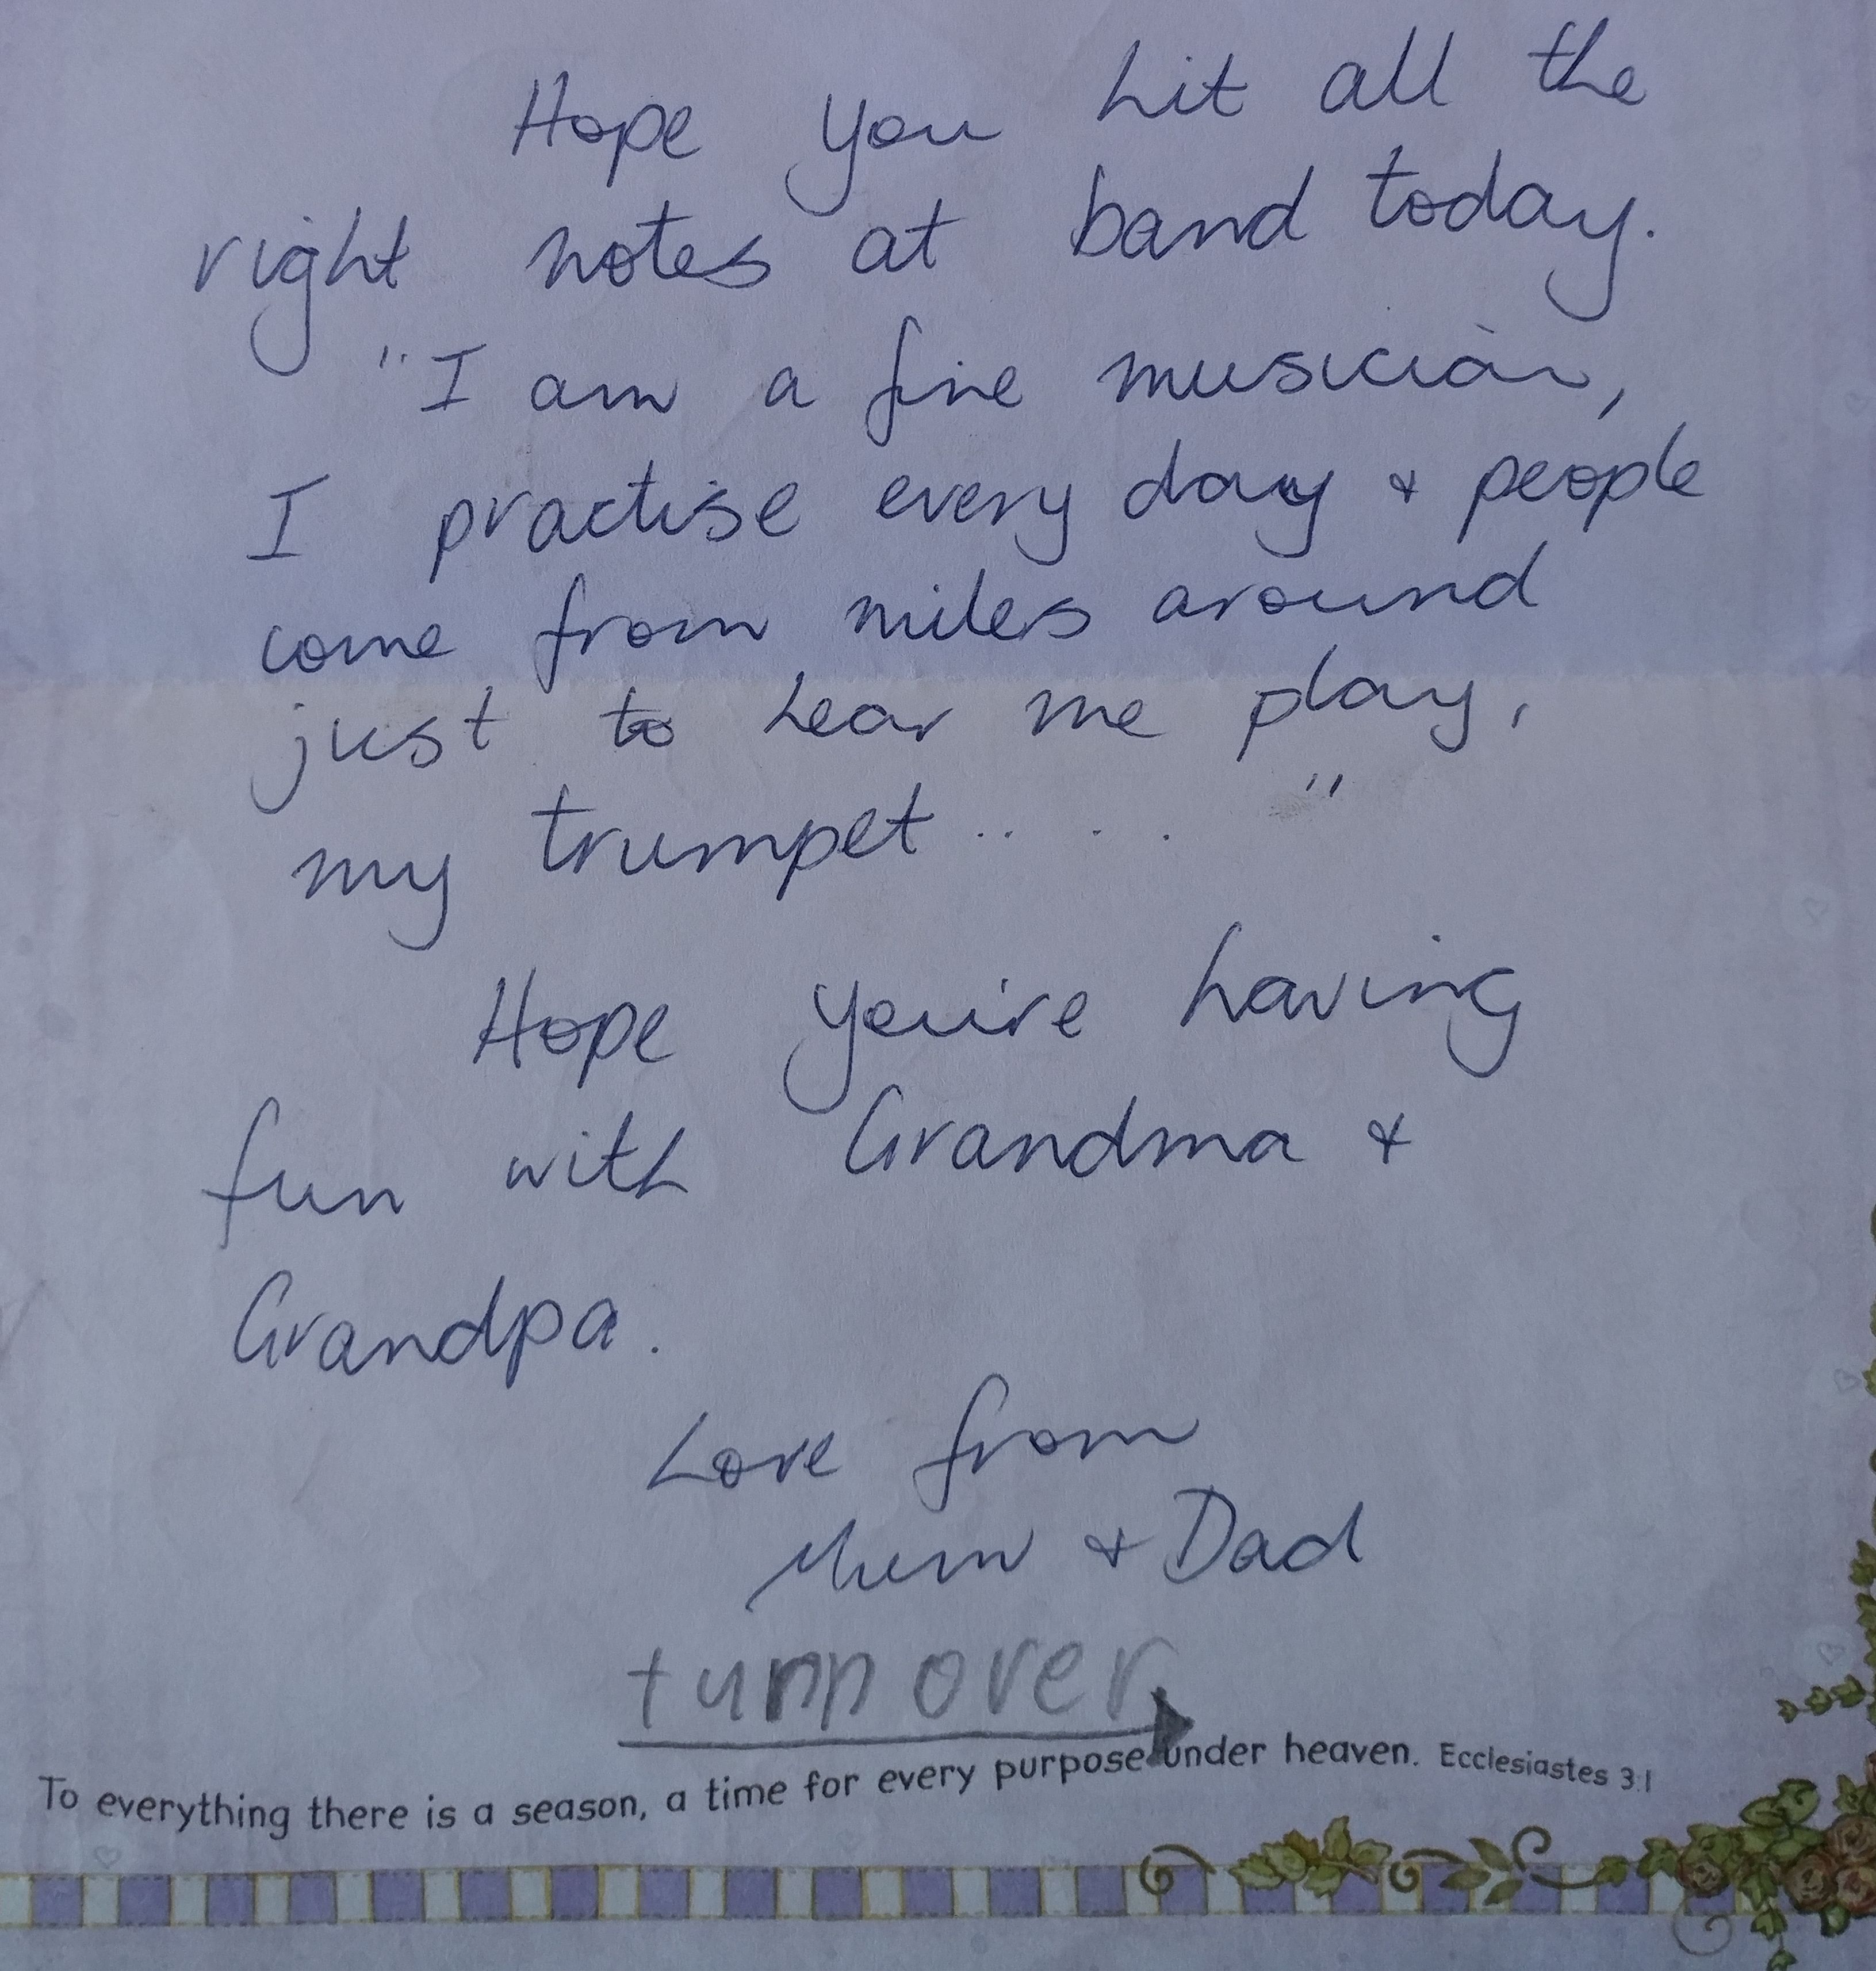 Hope you hit all the
right notes at band today.
"I am a fine musician,
I practise every day & people
come from miles around
just to hear me play,
my trumpet.. . . "
Hope you're having
fun with Grandma &
Grandpa.
Love from
Mum & Dad
turn over
To everything there is a season, a time for every purpose under heaven. Ecclesiastes 3:1